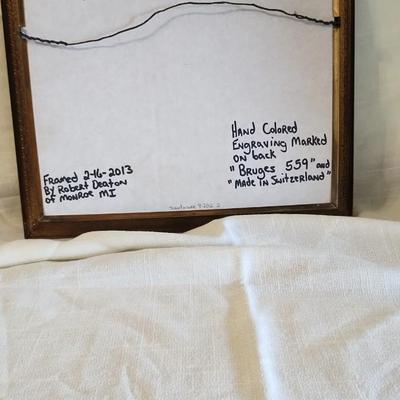 Framed 2-16-2013
By Robert Deaton
of MONROE MI
Hand Colored
Engraving Marked
on back
"Bruges 559" and
"Made in Switzerland"